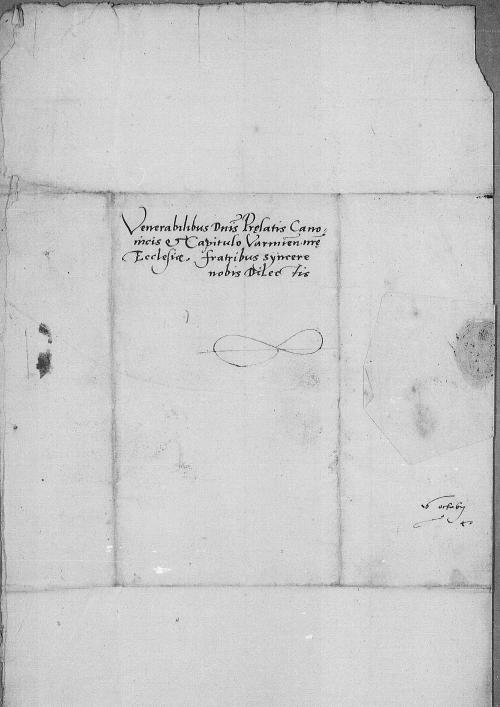 Venerabilibus Dnis̄ Prelatis Cano-
nicis & Capitulo Varmien̄ nr̄e
Ecclesiæ, fratribus syncere
nobis Dilectis